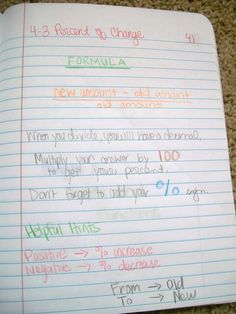 4-3 Percent of Change 41
FORMULA
new amount - old amount
old amount
When you divide, you will have a decimal.
Multiply your answer by 100
to get your percent.
Don't forget to add your % sign.
Helpful Hints
Positive → % increase
Negative → % decrease
From → Old
To → New